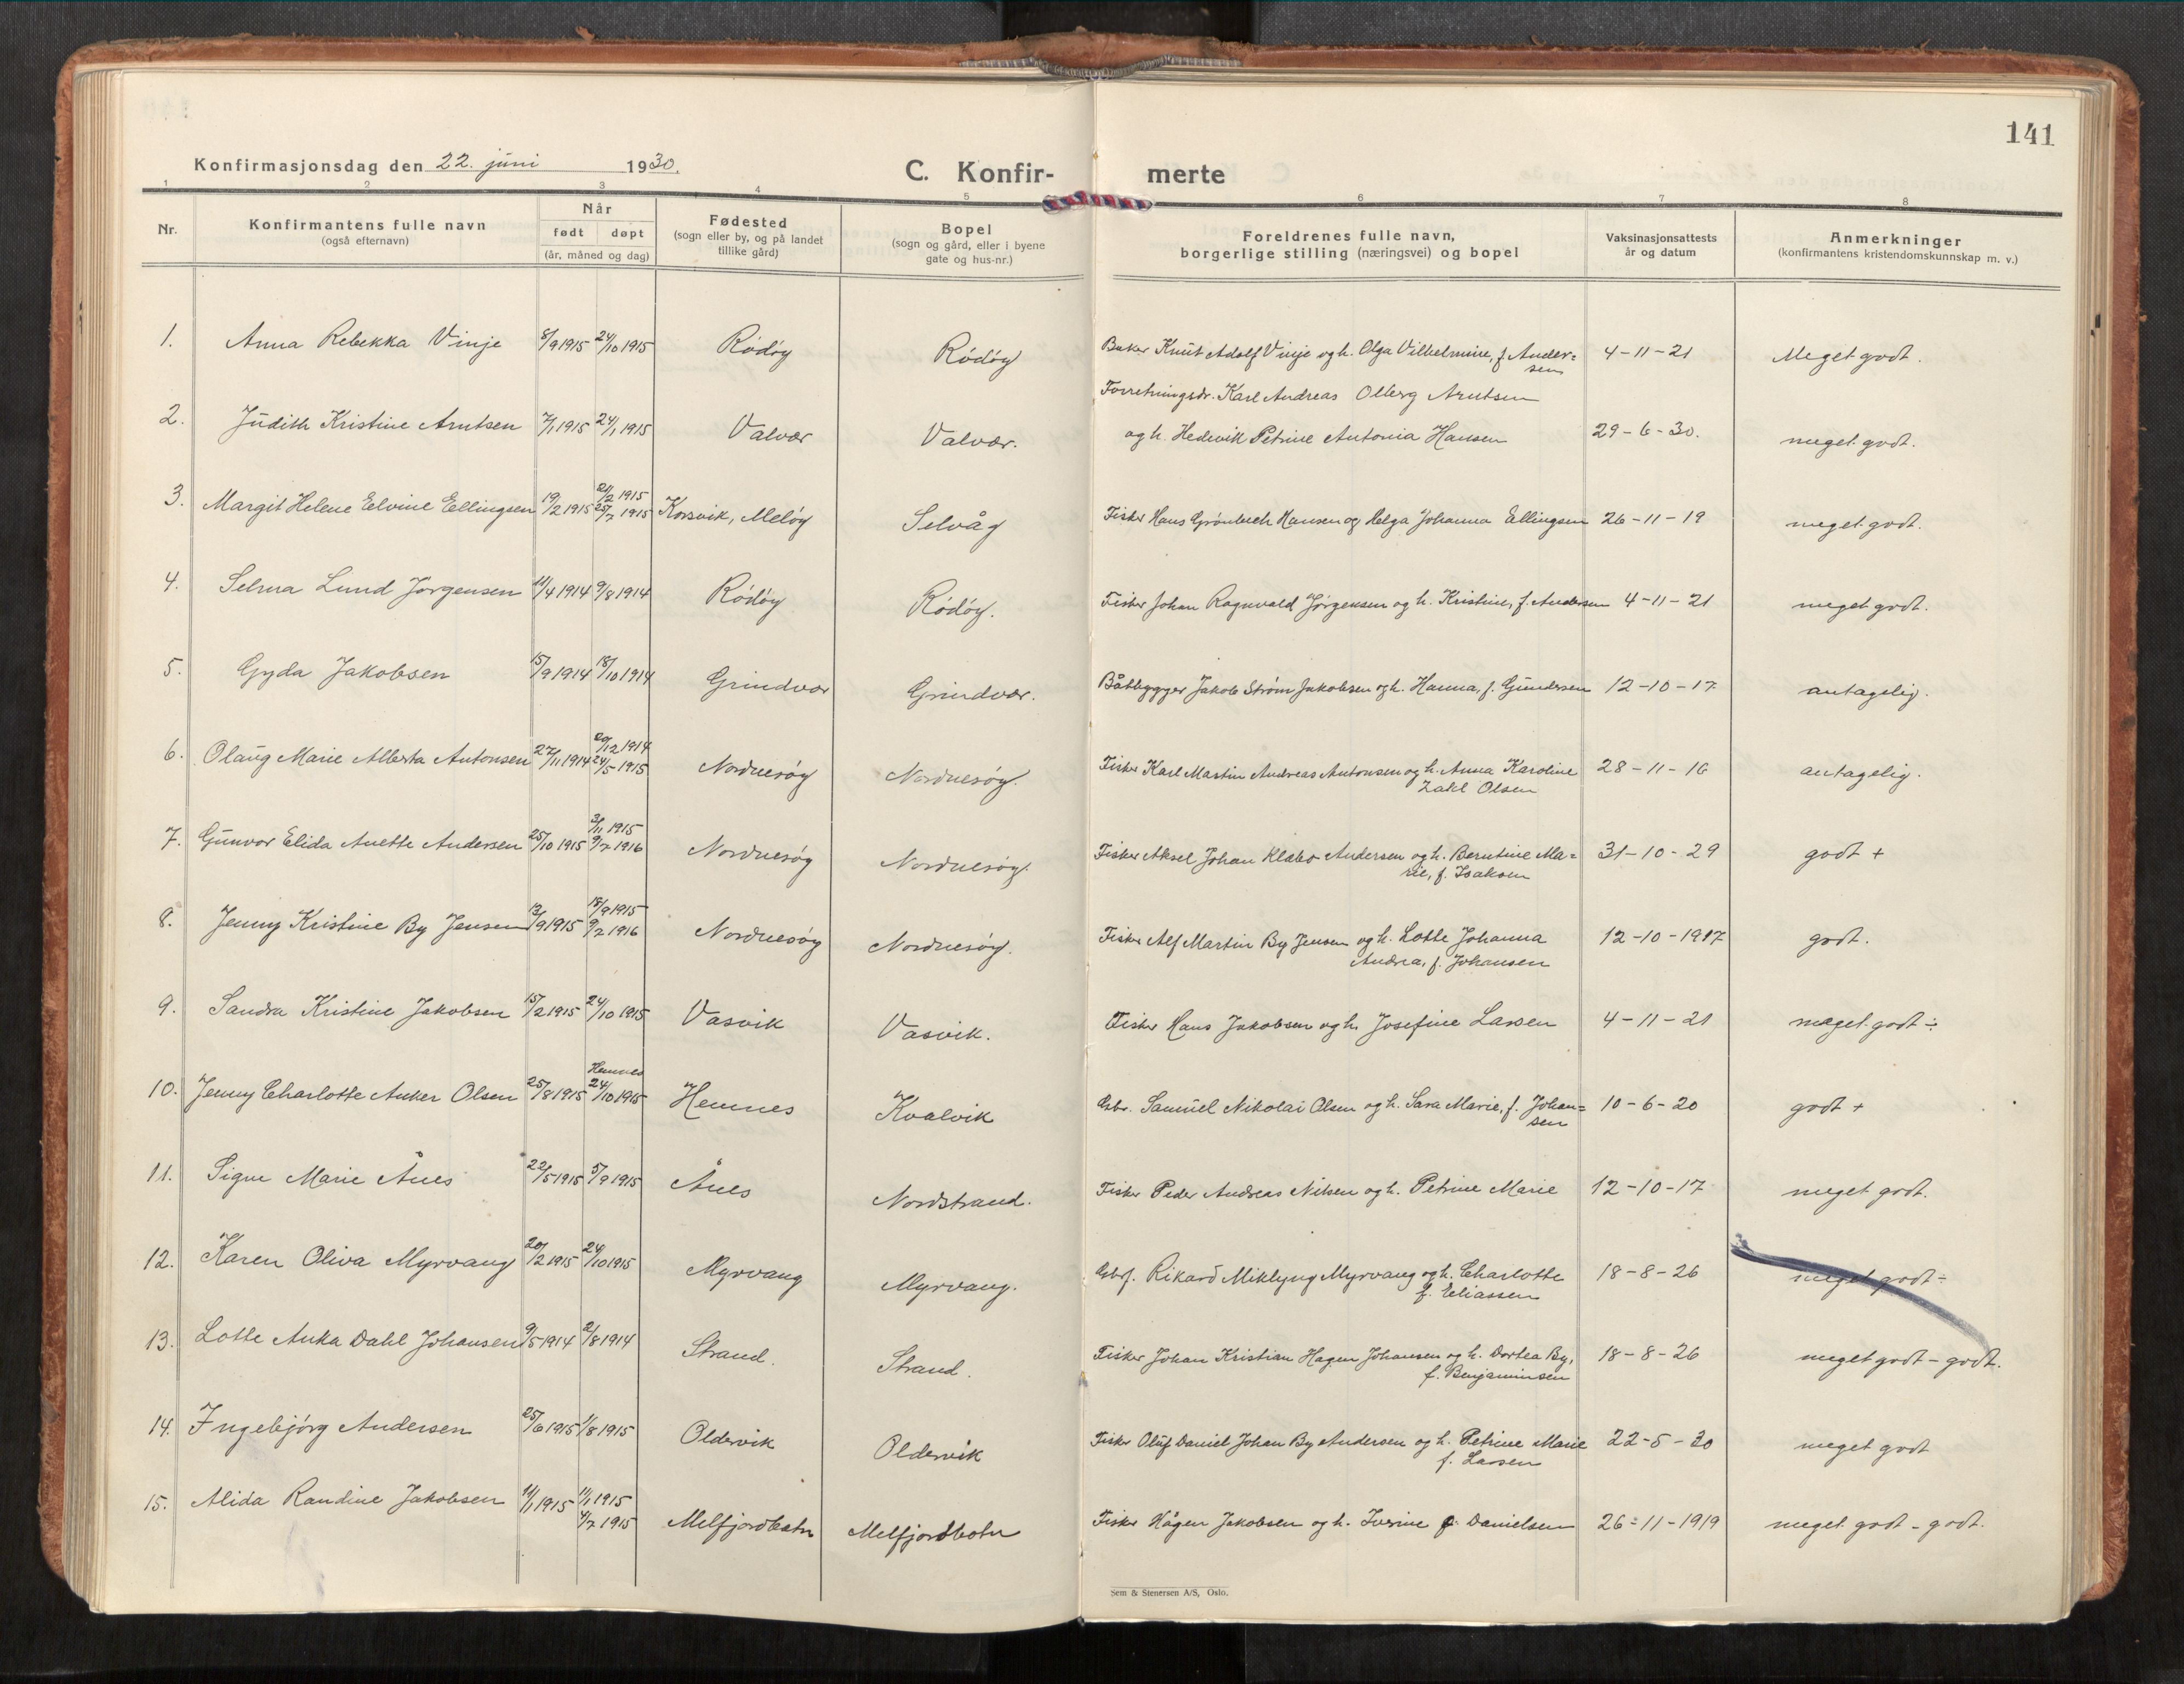 141
Konfirmasjonsdag den 22. juni 1930.
C. Konfir- merte
1 2 3 4 5 6 7 8
Nr.
Konfirmantens fulle navn
(også efternavn)
Når
født døpt
(år, måned og dag)
Fødested
(sogn eller by, og på landet
tillike gård)
Bopel
(sogn og gård, eller i byene
gate og hus-nr.)
Foreldrenes fulle navn,
borgerlige stilling (næringsvei) og bopel
Vaksinasjonsattests
år og datum
Anmerkninger
(konfirmantens kristendomskunnskap m. v.)
1. Anna Rebekka Vinje 8/9 1915 24/10 1915 Rödöy Rödöy Baker Knut Adolf Vinje og h. Olga Vilhelmine, f. Ander=
sen 4-11-21 Meget godt.
Forretningsdr. Karl Andreas Olberg Arntsen
2. Judith Kristine Arntsen 7/1 1915 24/1 1915 Valvær Valvær. og h. Hedevik Petrine Antonia Hansen 29-6-30. meget godt.
21/2 1915
3. Margit Helene Elvine Ellingsen 19/2 1915 25/7 1915 Korsvik, Melöy Selvåg Fisker Hans Grønbech Hansen og Helga Johanna Ellingsen 26-11-19 meget godt.
4. Selma Lund Jørgensen 11/4 1914 9/8 1914 Rödöy Rödöy. Fisker Johan Ragnvald Jørgensen og h. Kristine, f. Andersen 4-11-21 meget godt.
5. Gyda Jakobsen 15/9 1914 18/10 1914 Grindvær Grindvær. Båtbygger Jakob Strøm Jakobsen og h. Hanna, f. Gundersen 12-10-17 antagelig.
20/12 1914
6. Olaug Marie Alberta Antonsen 27/11 1914 24/5 1915 Nordnesøy Nordnesøy. Fisker Karl Martin Andreas Antonsen og h. Anna Karoline
Zahl Olsen 28-11-16 antagelig.
3/11 1915
7. Gunvor Elida Anette Andersen 25/10 1915 9/7 1916 Nordnesøy Nordnesøy. Fisker Aksel Johan Klæbo Andersen og h. Berntine Ma=
rie, f. Isaksen 31-10-29 godt +
18/9 1915
8. Jenny Kristine By Jensen 13/9 1915 9/7 1916 Nordnesøy Nordnesøy. Fisker Alf Martin By Jensen og h. Lotte Johanna
Andrea, f. Johansen 12-10-1917 godt.
9. Sandra Kristine Jakobsen 15/2 1915 24/10 1915 Vasvik Vasvik. Fisker Hans Jakobsen og h. Josefine Larsen 4-11-21 meget godt ÷
Hemnes
10. Jenny Charlotte Anker Olsen 25/8 1915 24/10 1915 Hemnes Kvalvik Gbr. Samuel Nikolai Olsen og h. Sara Marie, f. Johan=
sen 10-6-20 godt +
11. Signe Marie Ånes 22/5 1915 5/9 1915 Ånes Nordstrand. Fisker Peder Andreas Nilsen og h. Petrine Marie 12-10-17 meget godt.
12. Karen Oliva Myrvang 20/2 1915 24/10 1915 Myrvang Myrvang. Gbrf. Rikard Miklyng Myrvang og h. Charlotte
f. Eliassen 18-8-26 meget godt ÷
13. Lotte Anka Dahl Johansen 9/5 1914 2/8 1914 Strand. Strand. Fisker Johan Kristian Hagen Johansen og h. Dortea By,
f. Benjaminsen 18-8-26 meget godt - godt.
14. Ingebjørg Andersen 25/6 1915 1/8 1915 Oldervik Oldervik Fisker Oluf Daniel Johan By Andersen og h. Petrine Marie
f. Larsen 22-5-30 meget godt
15. Alida Randine Jakobsen 11/1 1915 11/1 1915
4/7 1915 Melfjordbotn Melfjordbotn Fisker Hågen Jakobsen og h. Iverine f. Danielsen 26-11-1919 meget godt - godt.
Sem & Stenersen A/S, Oslo.